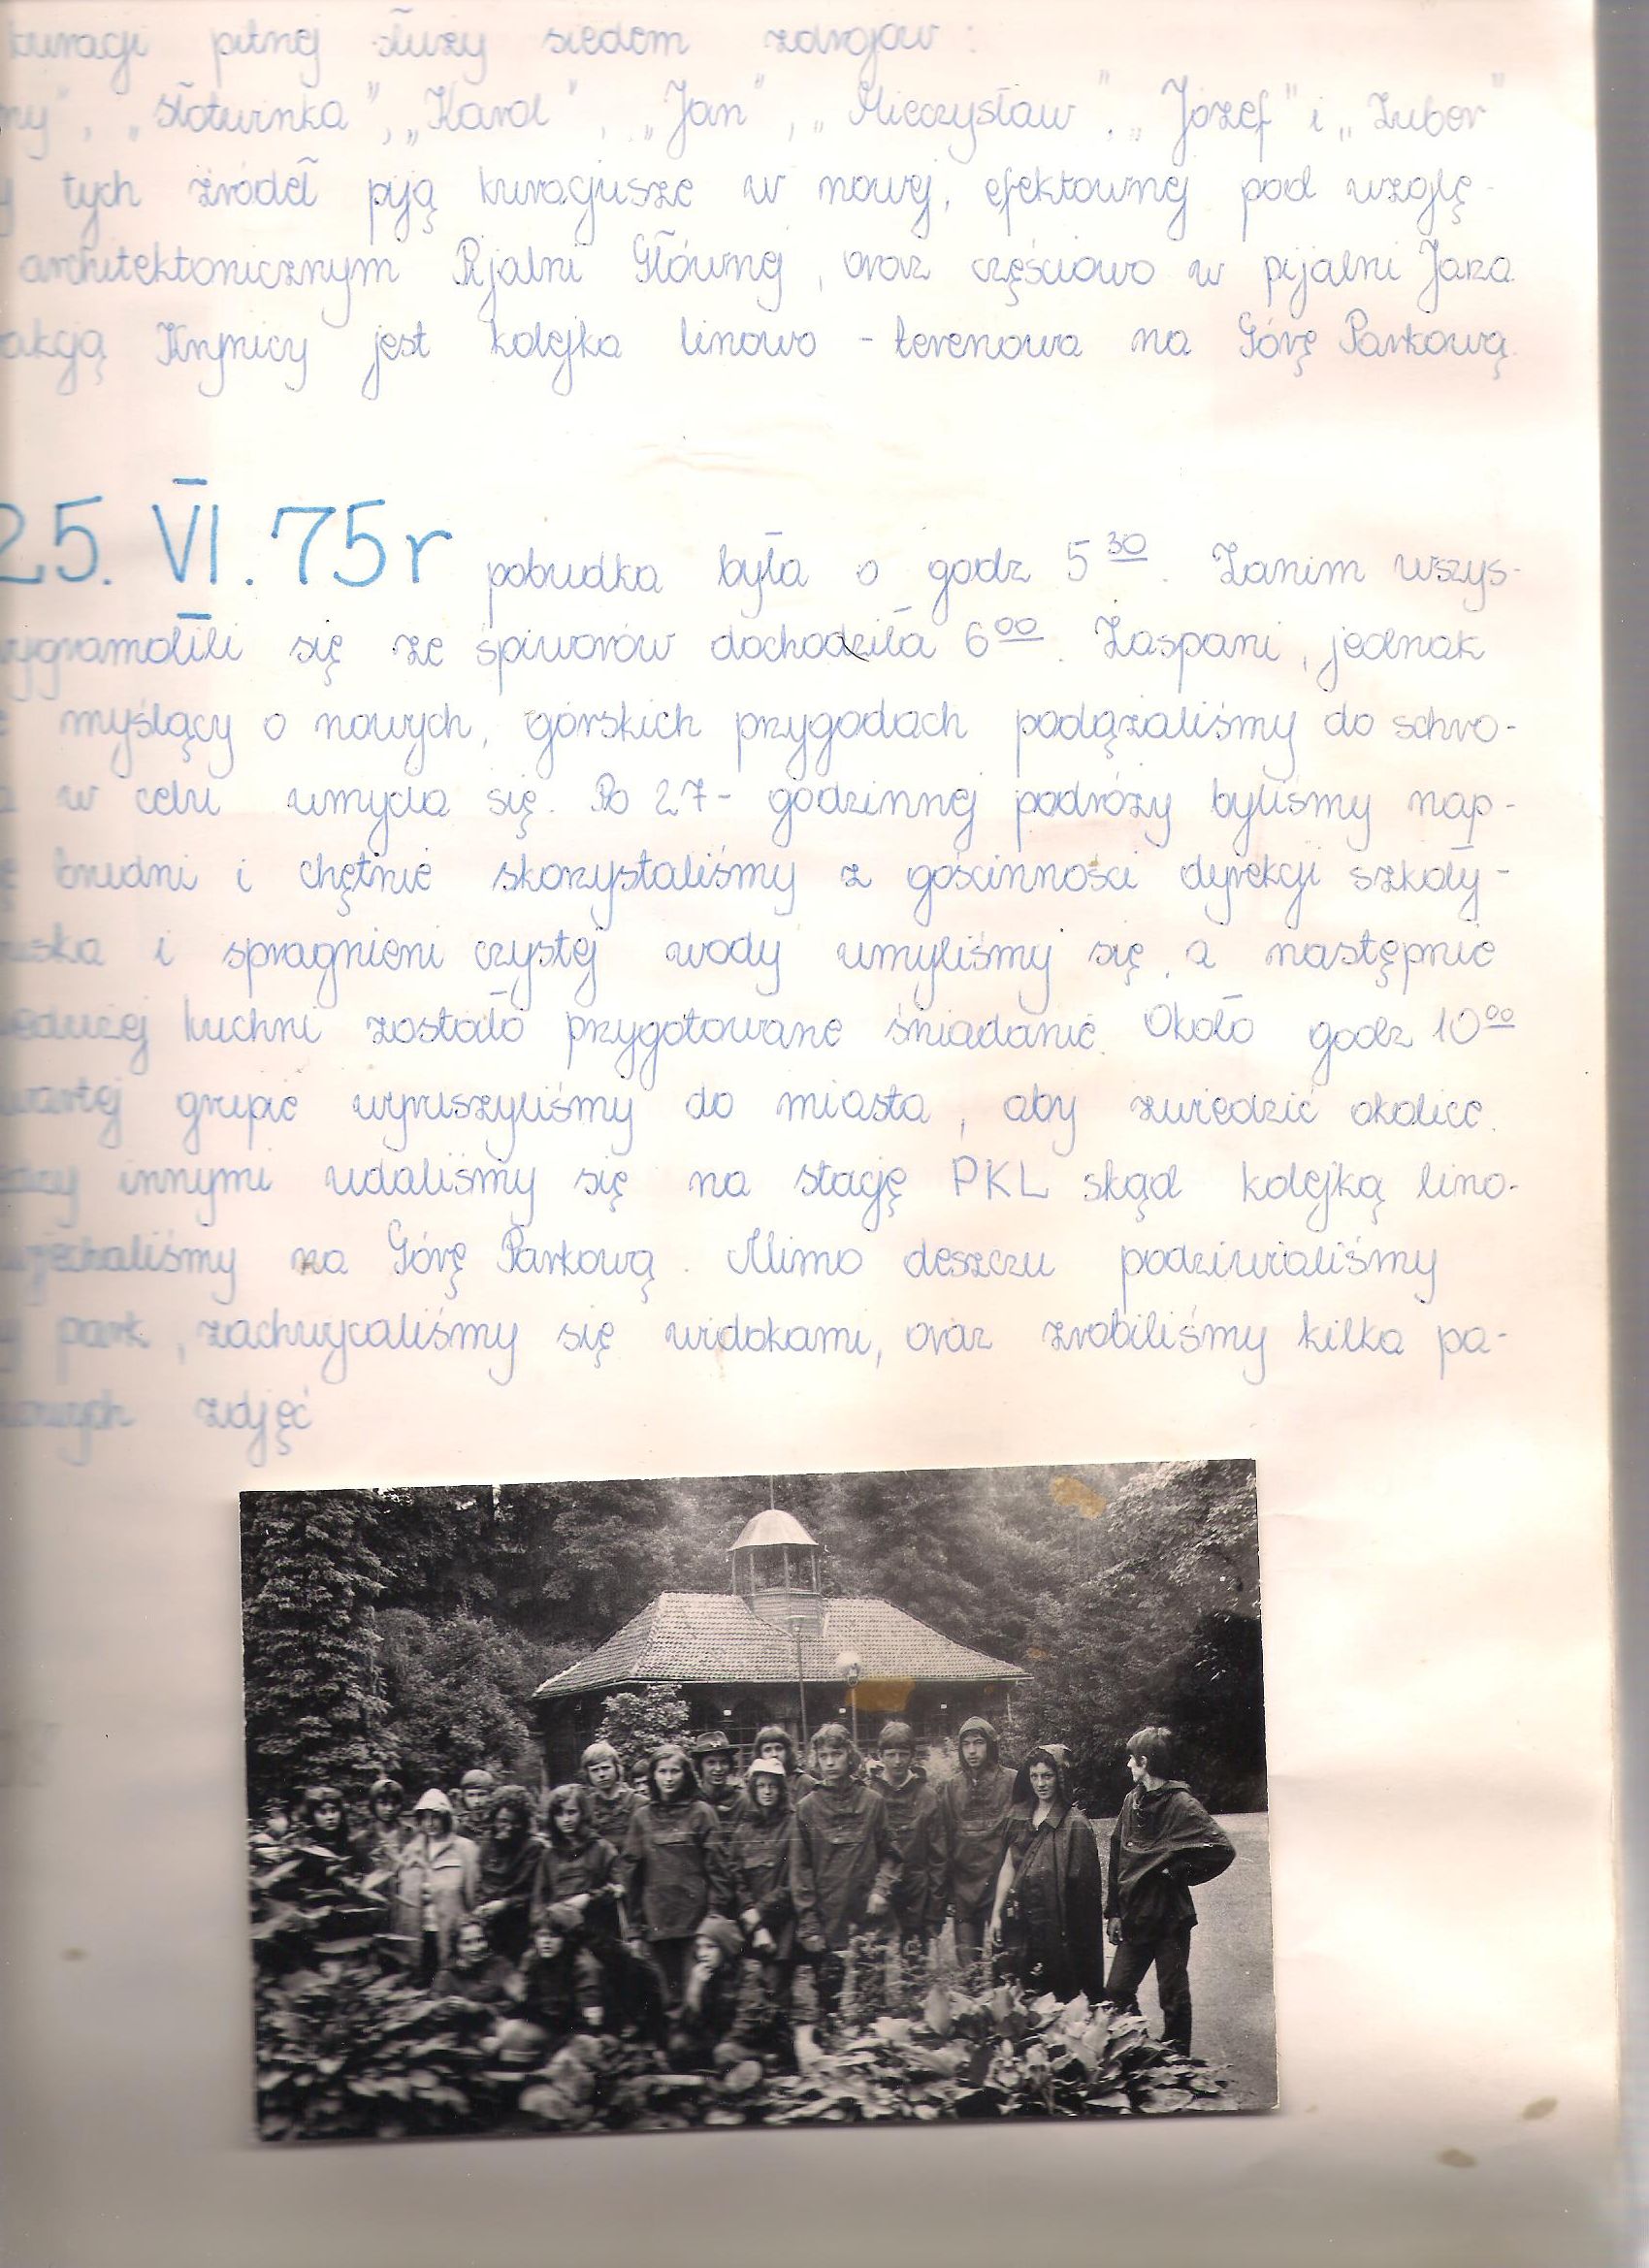 kuracji pitnej służy siedem zdrojów :
ny", „Słotwinka", „Karol", „Jan", „Mieczysław", „Józef" i „Zuber"
y tych źródeł piją kuracjusze w nowej, efektownej pod wzglę-
architektonicznym Pijalni Głównej, oraz częściowo w pijalni Jana.
akcją Krynicy jest kolejka linowo - terenowa na Górę Parkową.
25. VI. 75r pobudka była o godz 5 30. Zanim wszys-
wygramolili się ze śpiworów dochodziła 6 00. Zaspani, jednak
e myślący o nowych, górskich przygodach podążaliśmy do schro-
a w celu umycia się. Po 27- godzinnej podróży byliśmy nap-
ę brudni i chętnie skorzystaliśmy z gościnności dyrekcji szkoły-
niska i spragnieni czystej wody umyliśmy się, a następnie
niedużej kuchni zostało przygotowane śniadanie. Około godz 10 00
zwartej grupie wyruszyliśmy do miasta, aby zwiedzić okolice.
ędzy innymi udaliśmy się na stację PKL skąd kolejką lino-
wjechaliśmy na Górę Parkową. Mimo deszczu podziwialiśmy
y park, zachwycaliśmy się widokami, oraz zrobiliśmy kilka pa-
tkowych zdjęć